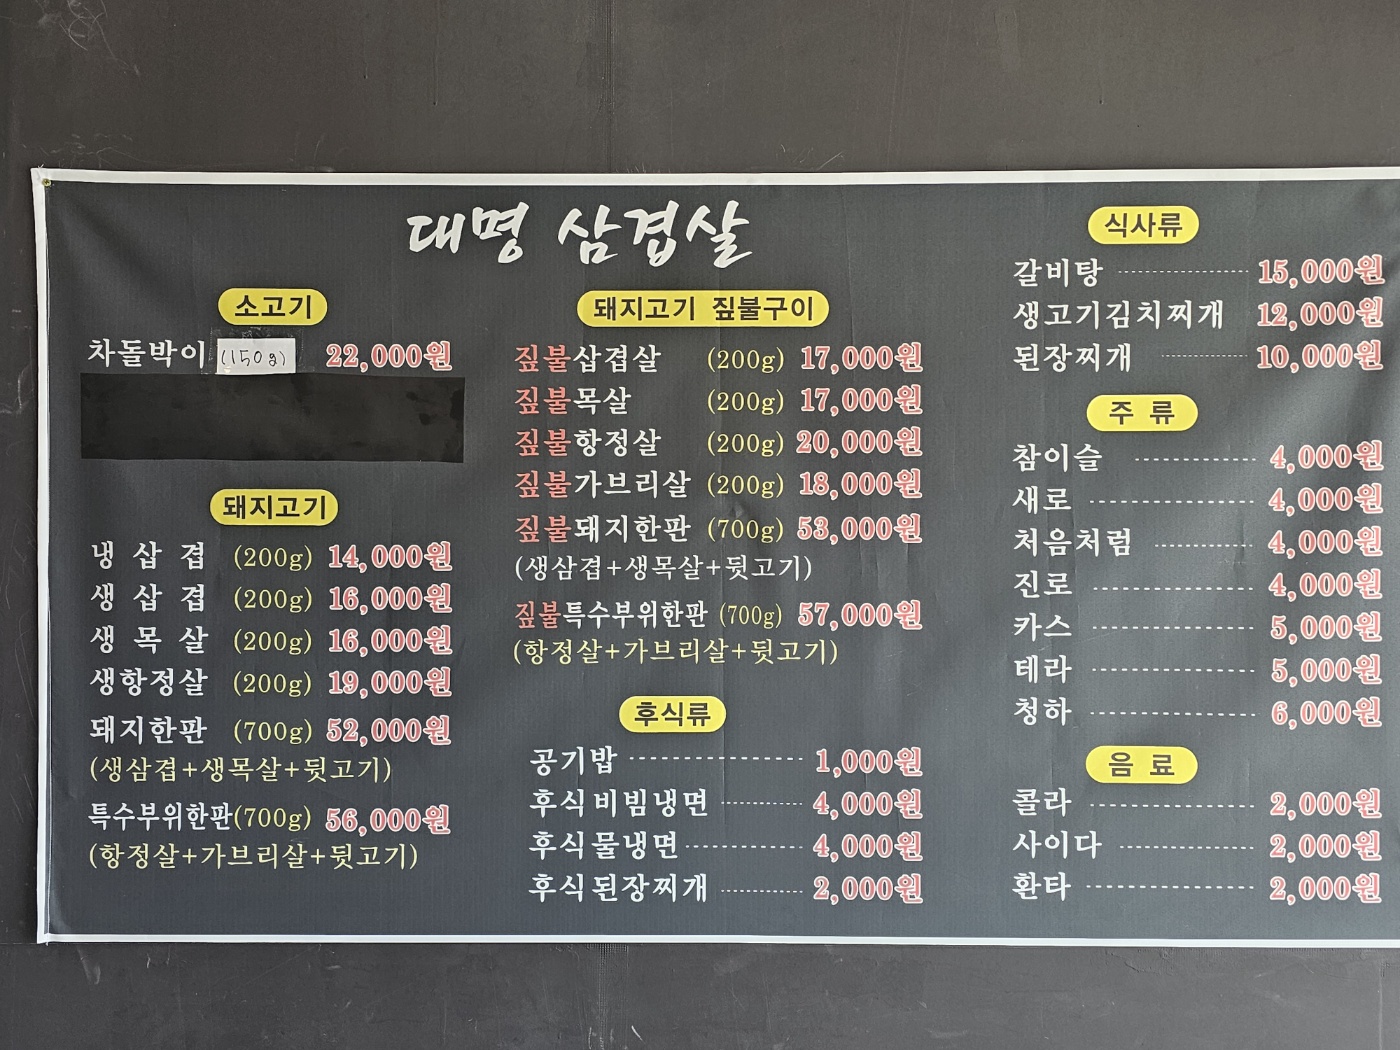 대명 삼겹살
소고기
차돌박이 (150g) 22,000원
돼지고기
냉 삼 겹 (200g) 14,000원
생 삼 겹 (200g) 16,000원
생 목 살 (200g) 16,000원
생항정살 (200g) 19,000원
돼지한판 (700g) 52,000원
(생삼겹+생목살+뒷고기)
특수부위한판(700g) 56,000원
(항정살+가브리살+뒷고기)
돼지고기 짚불구이
짚불삼겹살 (200g) 17,000원
짚불목살 (200g) 17,000원
짚불항정살 (200g) 20,000원
짚불가브리살 (200g) 18,000원
짚불돼지한판 (700g) 53,000원
(생삼겹+생목살+뒷고기)
짚불특수부위한판 (700g) 57,000원
(항정살+가브리살+뒷고기)
후식류
공기밥 1,000원
후식비빔냉면 4,000원
후식물냉면 4,000원
후식된장찌개 2,000원
식사류
갈비탕 15,000원
생고기김치찌개 12,000원
된장찌개 10,000원
주 류
참이슬 4,000원
새로 4,000원
처음처럼 4,000원
진로 4,000원
카스 5,000원
테라 5,000원
청하 6,000원
음 료
콜라 2,000원
사이다 2,000원
환타 2,000원